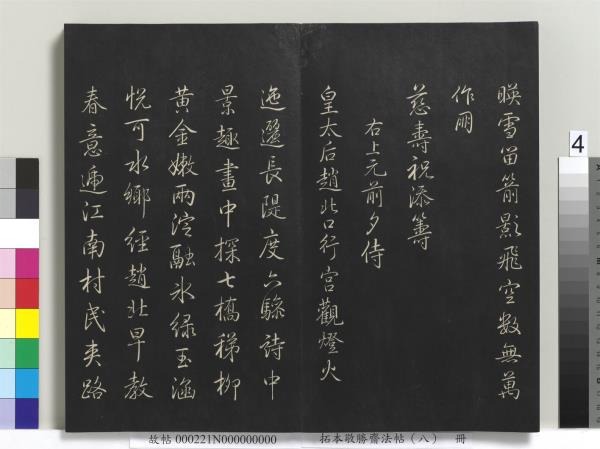 暎雪留箭影飛空数無萬
作朋
慈壽祝添籌
右上元前夕侍
皇太后趙北口行宫觀燈火
迤邐長隄度六騄詩中
景趣畫中探七橋稊柳
黄金嫩兩淀融氷緑玉涵
悦可水鄉經趙北早教
春意遍江南村民夹路
4
故帖 000221N000000000
拓本敬勝齋法帖（八） 冊